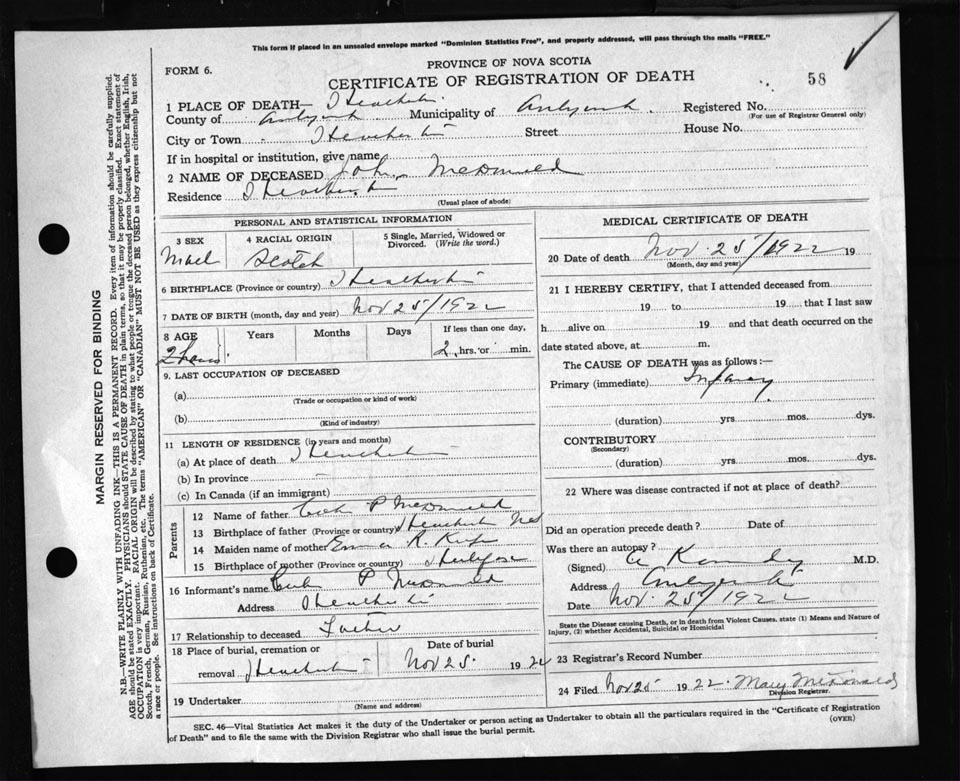 This form if placed in an unsealed envelope marked "Dominion Statistics Free", and properly addressed, will pass through the mails "FREE."
FORM 6.
PROVINCE OF NOVA SCOTIA
CERTIFICATE OF REGISTRATION OF DEATH
58
1 PLACE OF DEATH—
County of Municipality of Registered No.
(For use of Registrar General only)
City or Town Street House No.
If in hospital or institution, give name
2 NAME OF DECEASED John McDonald
Residence
(Usual place of abode)
PERSONAL AND STATISTICAL INFORMATION
3 SEX 4 RACIAL ORIGIN 5 Single, Married, Widowed or Divorced. (Write the word.)
Mael Scotch
6 BIRTHPLACE (Province or country)
7 DATE OF BIRTH (month, day and year) Nov 25/1922
8 AGE Years Months Days If less than one day,
2 hours 2 hrs. or min.
9. LAST OCCUPATION OF DECEASED
(a)
(Trade or occupation or kind of work)
(b)
(Kind of industry)
11 LENGTH OF RESIDENCE (in years and months)
(a) At place of death
(b) In province
(c) In Canada (if an immigrant)
Parents
12 Name of father P McDonald
13 Birthplace of father (Province or country)
14 Maiden name of mother Emma R.
15 Birthplace of mother (Province or country)
16 Informant's name P McDonald
Address
17 Relationship to deceased Father
18 Place of burial, cremation or removal Date of burial
Nov 25 1922
19 Undertaker
(Name and address)
MEDICAL CERTIFICATE OF DEATH
20 Date of death Nov. 25/1922 19
(Month, day and year)
21 I HEREBY CERTIFY, that I attended deceased from
19 to 19 that I last saw
h alive on 19 and that death occurred on the
date stated above, at m.
The CAUSE OF DEATH was as follows:—
Primary (immediate) Infancy
(duration) yrs. mos. dys.
CONTRIBUTORY
(Secondary)
(duration) yrs. mos. dys.
22 Where was disease contracted if not at place of death?
Did an operation precede death? Date of
Was there an autopsy?
(Signed) M.D.
Address
Date Nov. 25/1922
State the Disease causing Death, or in death from Violent Causes, state (1) Means and Nature of
Injury, (2) whether Accidental, Suicidal or Homicidal
23 Registrar's Record Number
24 Filed Nov 25 1922 Mary McDonald
Division Registrar.
SEC. 46—Vital Statistics Act makes it the duty of the Undertaker or person acting as Undertaker to obtain all the particulars required in the "Certificate of Registration
of Death" and to file the same with the Division Registrar who shall issue the burial permit. (OVER)
MARGIN RESERVED FOR BINDING
N.B.—WRITE PLAINLY WITH UNFADING INK—THIS IS A PERMANENT RECORD. Every item of information should be carefully supplied.
AGE should be stated EXACTLY. PHYSICIANS should STATE CAUSE OF DEATH in plain terms, so that it may be properly classified. Exact statement of
OCCUPATION is very important. RACIAL ORIGIN will be described by stating to what people or tongue the deceased person belonged, whether English, Irish,
Scotch, French, German, Russian, Ruthenian, etc. The terms "AMERICAN" or "CANADIAN" MUST NOT BE USED as they express citizenship but not
a race or people. See instructions on back of Certificate.